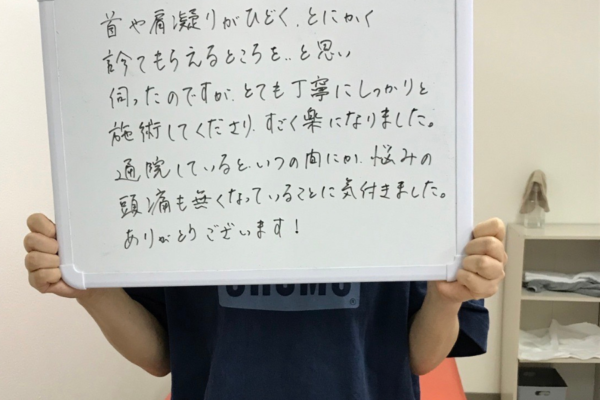 首や肩凝りがひどく、とにかく
診てもらえるところを..と思い
伺ったのですが、とても丁寧にしっかりと
施術してくださり、すごく楽になりました。
通院していると、いつの間にか、悩みの
頭痛も無くなっていることに気付きました。
ありがとうございます!
CHUMS